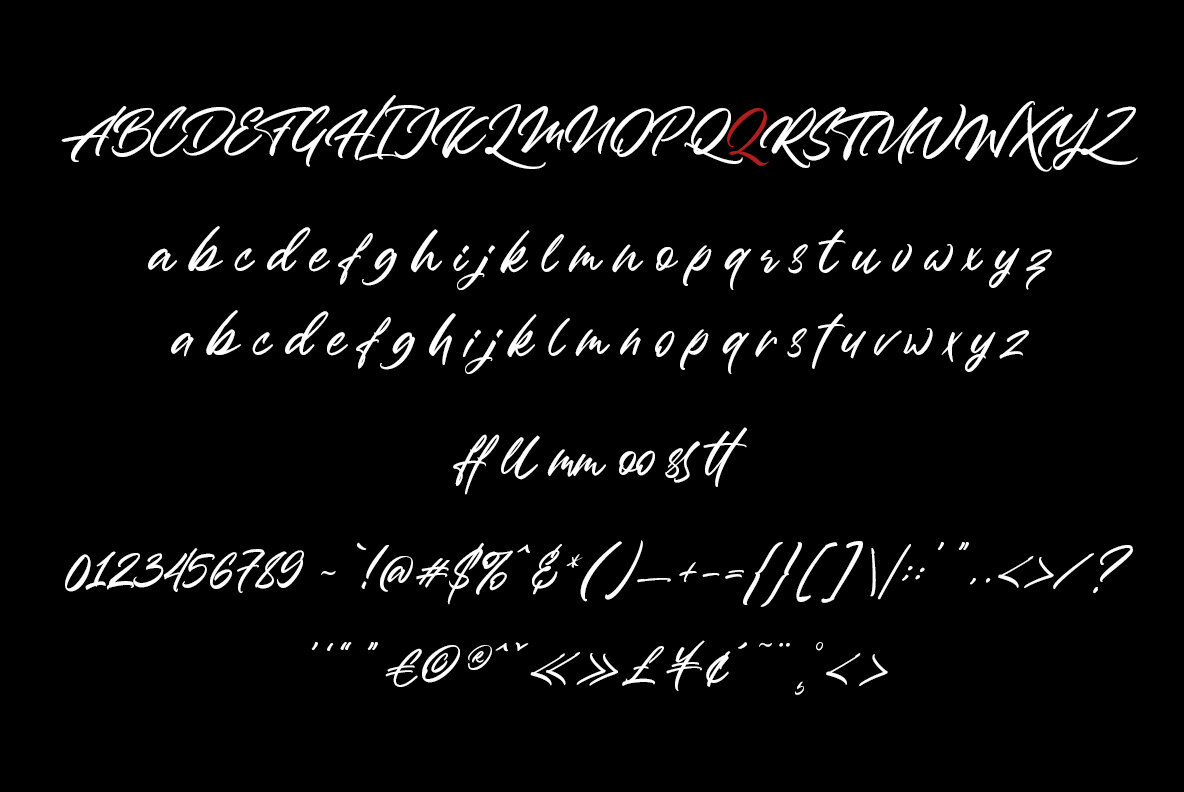 ABCDEFGHIJKLMNOPQQRSTUVWXYZ
a b c d e f g h i j k l m n o p q r s t u v w x y z
a b c d e f g h i j k l m n o p q r s t u v w x y z
ff ll mm oo ss tt
0123456789 ~ `!@#$%^&*()_+-={}[]\|:: ' " , . < > / ?
' ' “ ” € © ® ^ ˇ « » £ ¥ ¢ ´ ~ ¨ ¸ ° < >